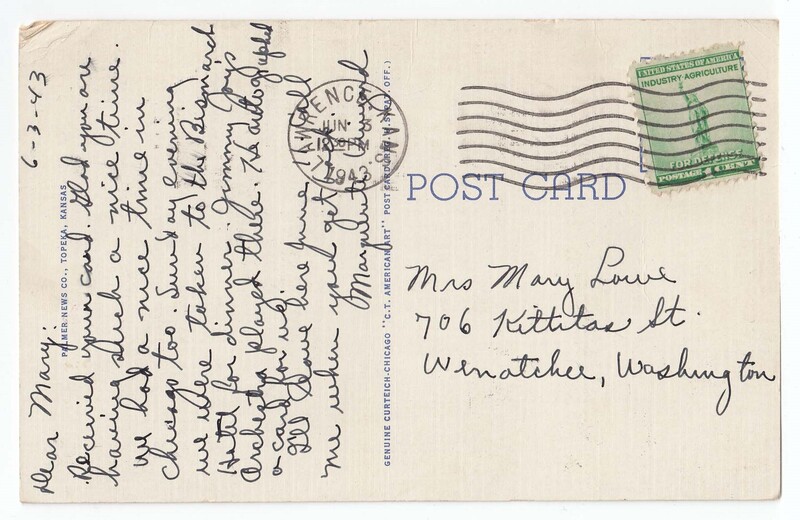 6-3-43
Dear Mary:
Received your card. Glad you are
having such a nice time.
We had a nice time in
Chicago too. Sunday evening
we were taken to the Bismarck
Hotel for dinner. Jimmy Joys
Orchestra played there. He autographed
a card for us.
I'll leave here June Call
me when you get
Marguerite
PALMER NEWS CO., TOPEKA, KANSAS
GENUINE CURTEICH-CHICAGO "C.T. AMERICAN ART" POST CARD (REG. U.S. PAT. OFF.)
LAWRENCE
JUN 3
PM
1943
UNITED STATES OF AMERICA
INDUSTRY·AGRICULTURE
FOR DEFENSE
POSTAGE 1 CENT
POST CARD
Mrs Mary Lowe
706 Kittitas St.
Wenatchee, Washington